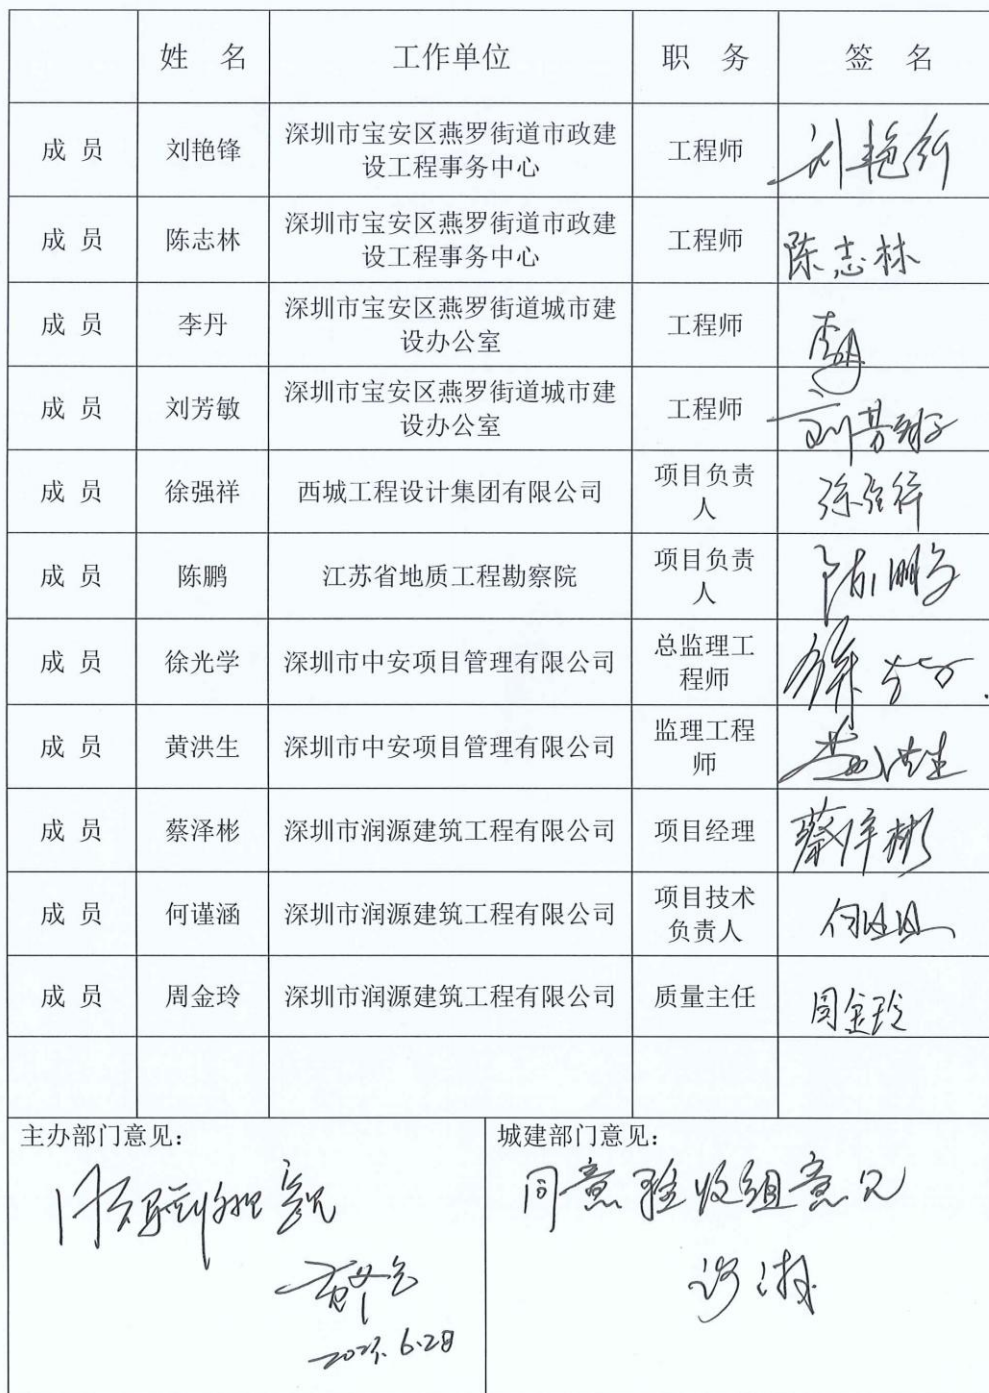 姓 名 工作单位 职 务 签 名
成 员 刘艳锋 深圳市宝安区燕罗街道市政建 工程师 刘艳锋
设工程事务中心
成 员 陈志林 深圳市宝安区燕罗街道市政建 工程师 陈志林
设工程事务中心
成 员 李丹 深圳市宝安区燕罗街道城市建 工程师 李丹
设办公室
成 员 刘芳敏 深圳市宝安区燕罗街道城市建 工程师 刘芳敏
设办公室
成 员 徐强祥 西城工程设计集团有限公司 项目负责 徐强祥
人
成 员 陈鹏 江苏省地质工程勘察院 项目负责 陈鹏
人
成 员 徐光学 深圳市中安项目管理有限公司 总监理工 徐光学
程师
成 员 黄洪生 深圳市中安项目管理有限公司 监理工程 黄洪生
师
成 员 蔡泽彬 深圳市润源建筑工程有限公司 项目经理 蔡泽彬
成 员 何谨涵 深圳市润源建筑工程有限公司 项目技术 何谨涵
负责人
成 员 周金玲 深圳市润源建筑工程有限公司 质量主任 周金玲
主办部门意见：
同意验收组意见
城建部门意见：
同意验收组意见